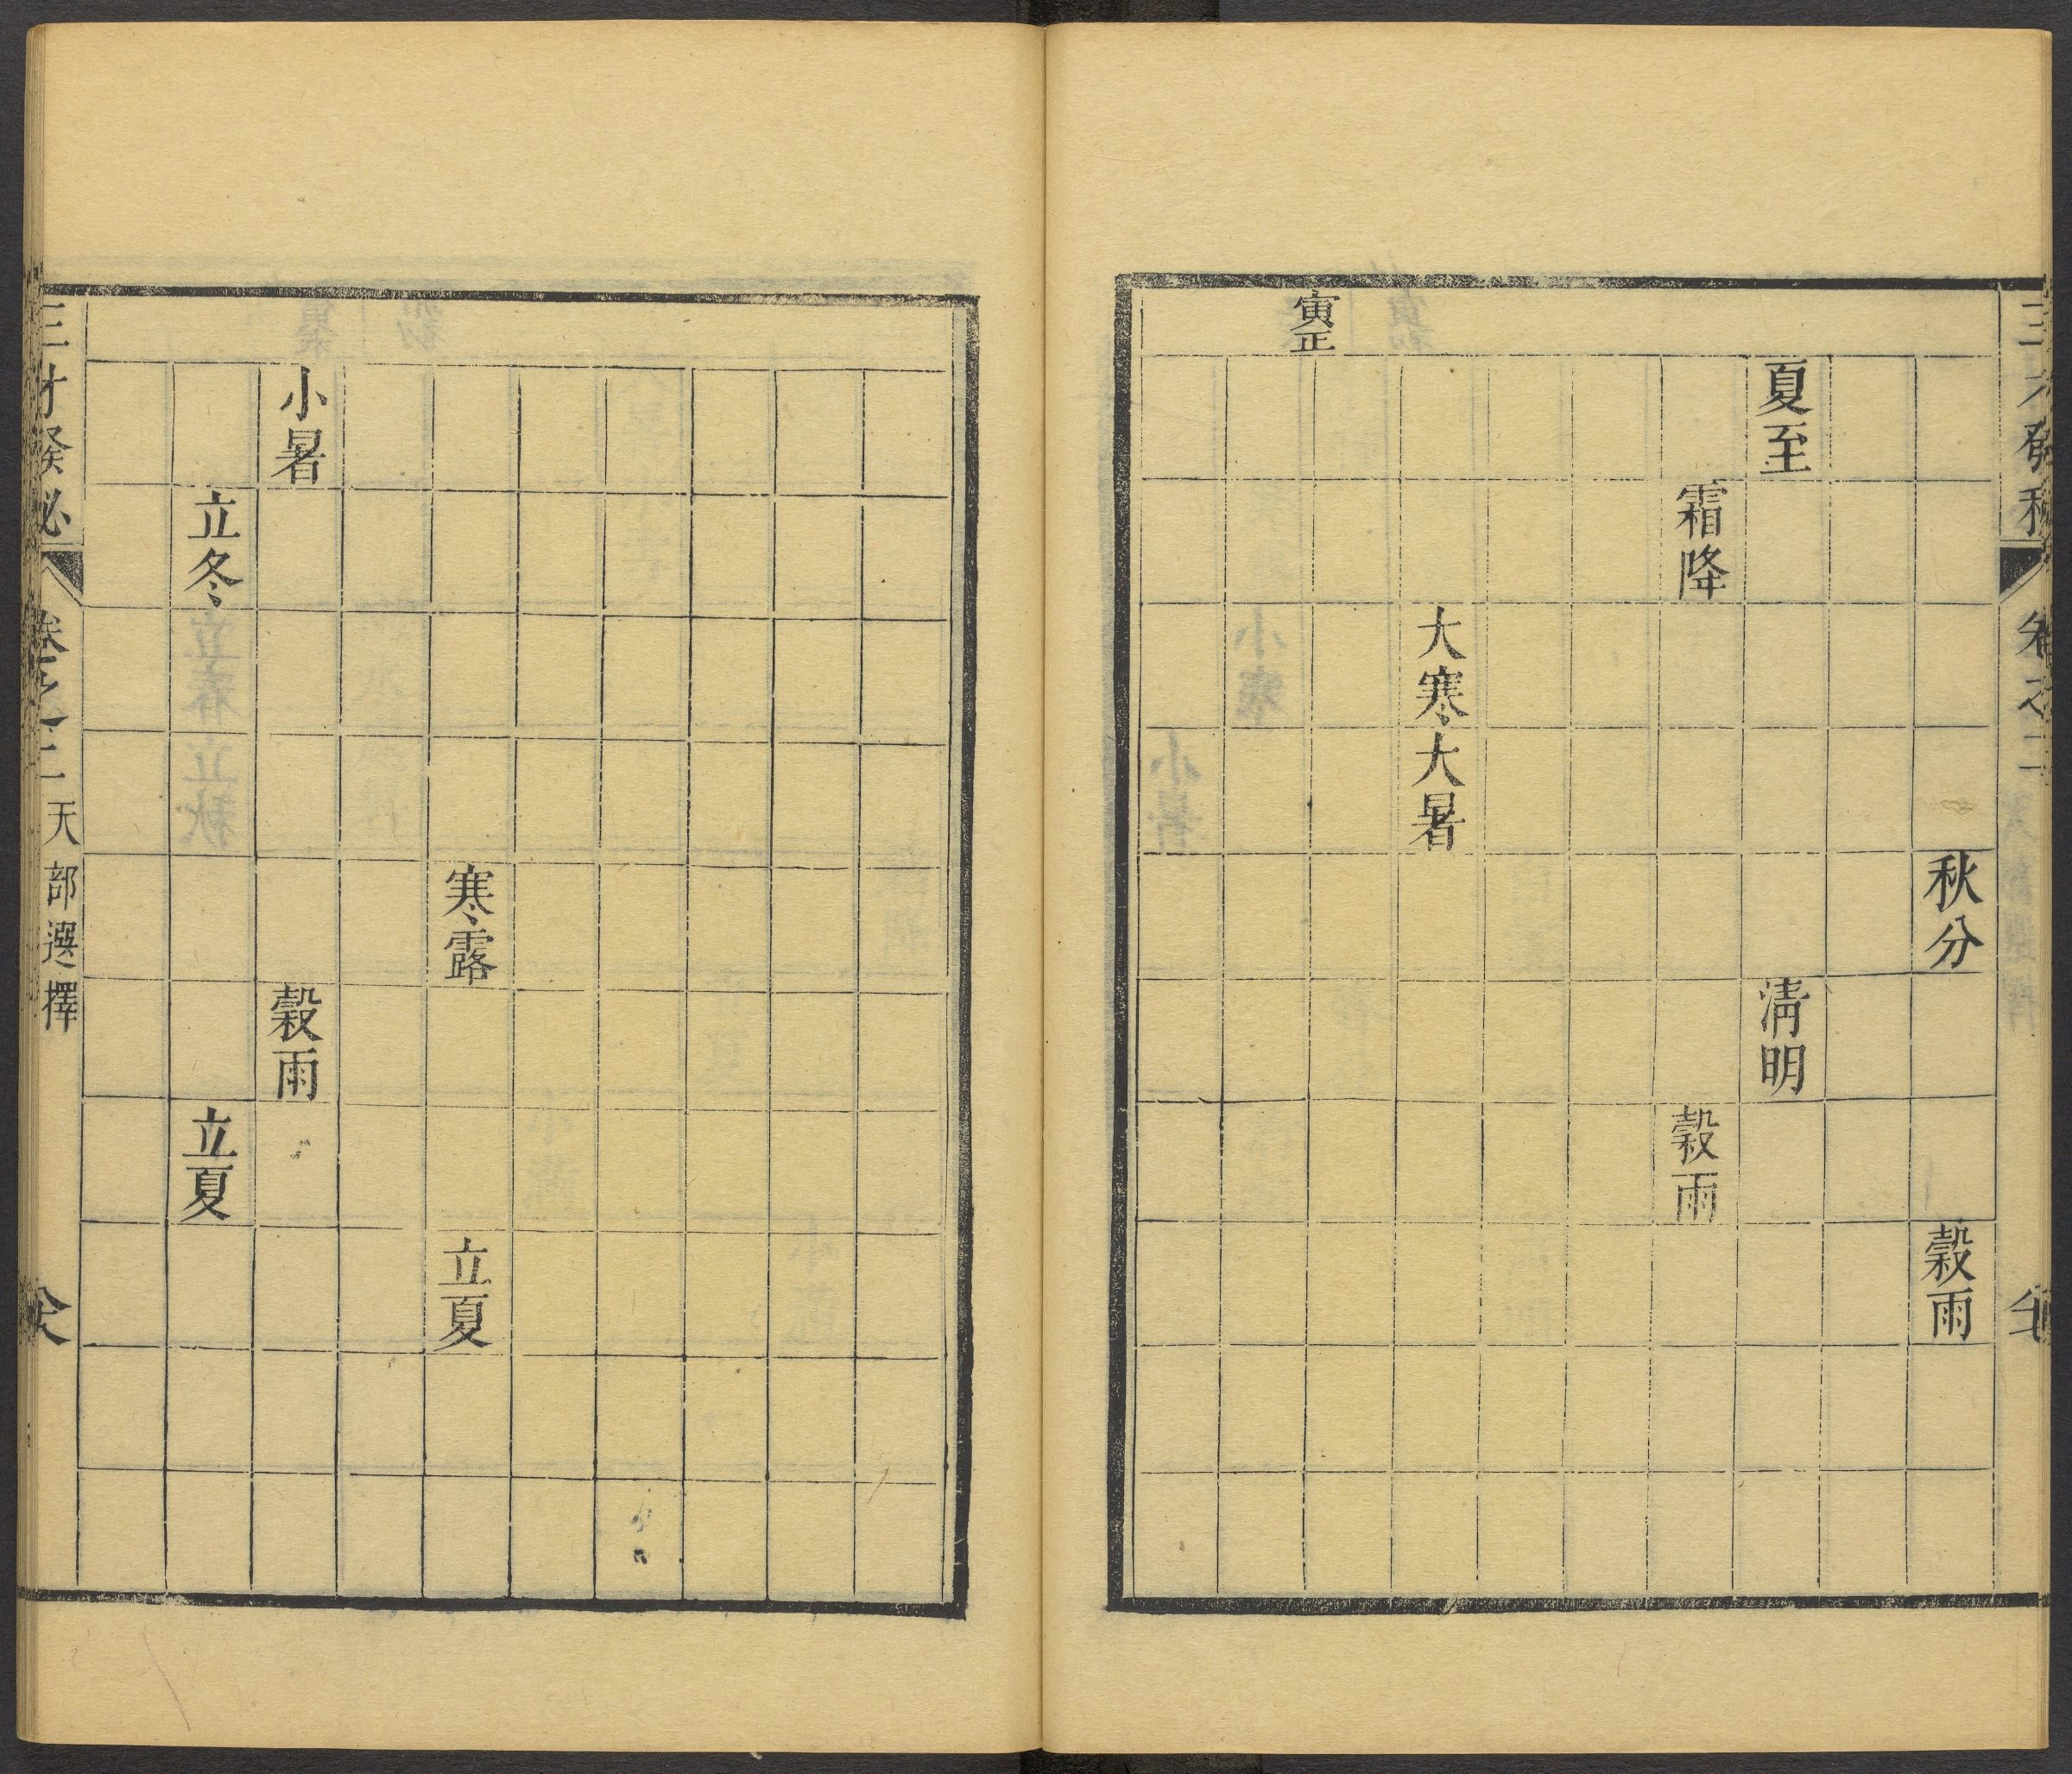 三才發秘
卷之二
秋分
穀雨
夏至
清明
霜降
穀雨
大寒
大暑
寅正
寒露
立夏
小暑
穀雨
立冬
立夏
三才發秘
卷之二
天部選擇